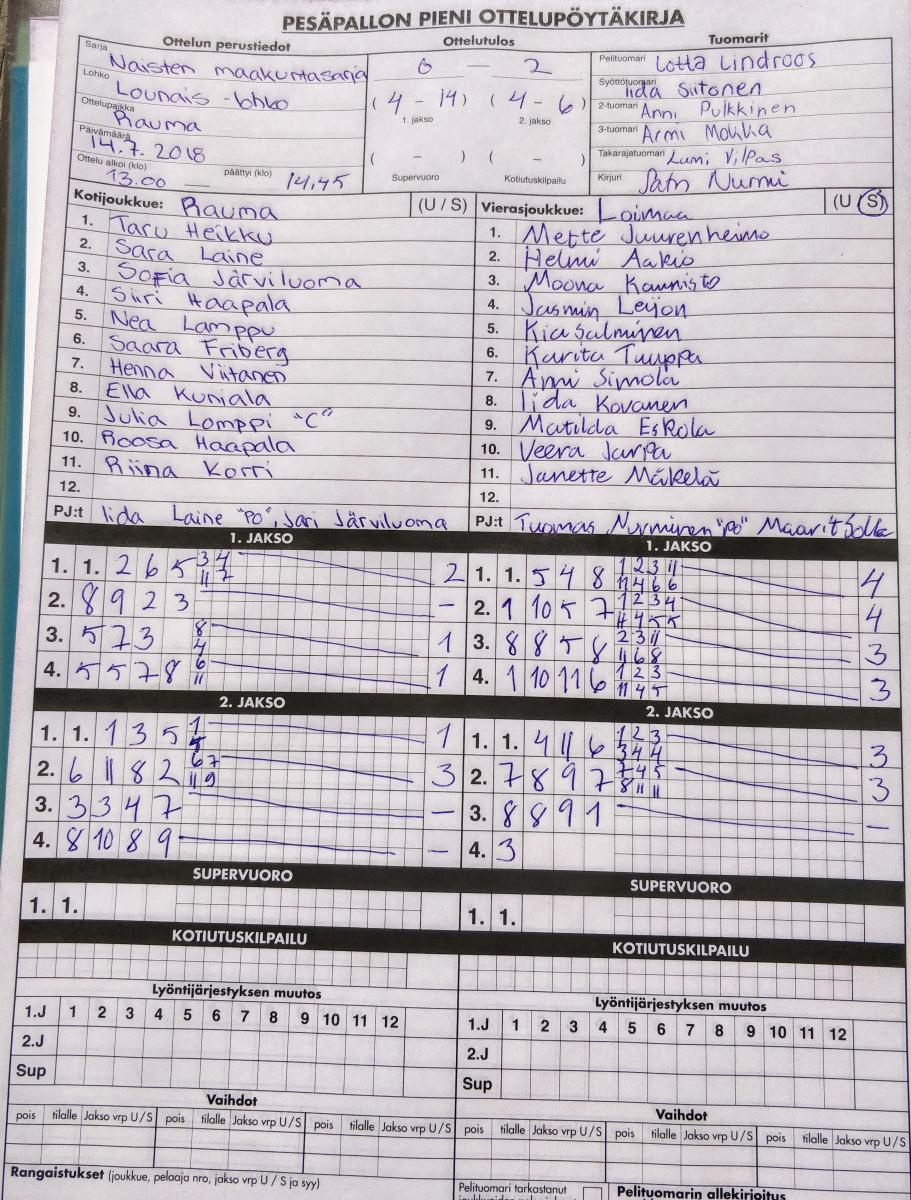 PESÄPALLON PIENI OTTELUPÖYTÄKIRJA
Ottelun perustiedot
Sarja Naisten maakuntasarja
Lohko Lounais-lohko
Ottelupaikka Rauma
Päivämäärä 14.7.2018
Ottelu alkoi (klo) 13.00 päättyi (klo) 14.45
Ottelutulos
0 — 2
(4 - 14) (4 - 6)
1. jakso 2. jakso
( - ) ( - )
Supervuoro Kotiutuskilpailu
Tuomarit
Pelituomari Lotta Lindroos
Syöttötuomari Iida Siitonen
2-tuomari Anni Pulkkinen
3-tuomari Armi Mokka
Takarajatuomari Lumi Vilpas
Kirjuri Satu Nurmi
Kotijoukkue: Rauma (U / S)
1. Taru Heikku
2. Sara Laine
3. Sofia Järviluoma
4. Siiri Haapala
5. Nea Lamppu
6. Saara Friberg
7. Henna Viitanen
8. Ella Kuniala
9. Julia Lomppi "C"
10. Roosa Haapala
11. Riina Korri
12.
PJ:t Iida Laine "PO", Jari Järviluoma
Vierasjoukkue: Loimaa (U / S)
1. Mette Juurenheimo
2. Helmi Aakio
3. Moona Kaunisto
4. Jasmin Leijon
5. Kia Salminen
6. Karita Tuuppa
7. Anni Simola
8. Iida Kovanen
9. Matilda Eskola
10. Veera Jarpa
11. Janette Mäkelä
12.
PJ:t Tuomas Nyrminen "PO" Maarit
1. JAKSO
1. 1. 2 6 5 3 4 11 7 2
2. 8 9 2 3 -
3. 5 7 3 8 4 1
4. 5 5 7 8 6 11 1
2. JAKSO
1. 1. 1 3 5 1 4 1
2. 6 11 8 2 6 7 11 9 3
3. 3 3 4 7 -
4. 8 10 8 9 -
SUPERVUORO
1. 1.
KOTIUTUSKILPAILU
Lyöntijärjestyksen muutos
1.J 1 2 3 4 5 6 7 8 9 10 11 12
2.J
Sup
Vaihdot
pois tilalle Jakso vrp U / S pois tilalle Jakso vrp U / S pois tilalle Jakso vrp U / S
Rangaistukset (joukkue, pelaaja nro, jakso vrp U / S ja syy)
1. JAKSO
1. 1. 5 4 8 1 2 3 11 11 4 6 6 4
2. 1 10 5 7 1 2 3 4 11 4 5 5 4
3. 8 8 5 8 2 3 11 11 6 8 3
4. 1 10 11 6 1 2 3 11 4 5 3
2. JAKSO
1. 1. 4 11 6 1 2 3 3 4 4 3
2. 7 8 9 7 7 4 5 8 11 11 3
3. 8 8 9 1 -
4. 3
SUPERVUORO
1. 1.
KOTIUTUSKILPAILU
Lyöntijärjestyksen muutos
1.J 1 2 3 4 5 6 7 8 9 10 11 12
2.J
Sup
Vaihdot
pois tilalle Jakso vrp U / S pois tilalle Jakso vrp U / S pois tilalle Jakso vrp U / S
Pelituomari tarkastanut
Pelituomarin allekirjoitus